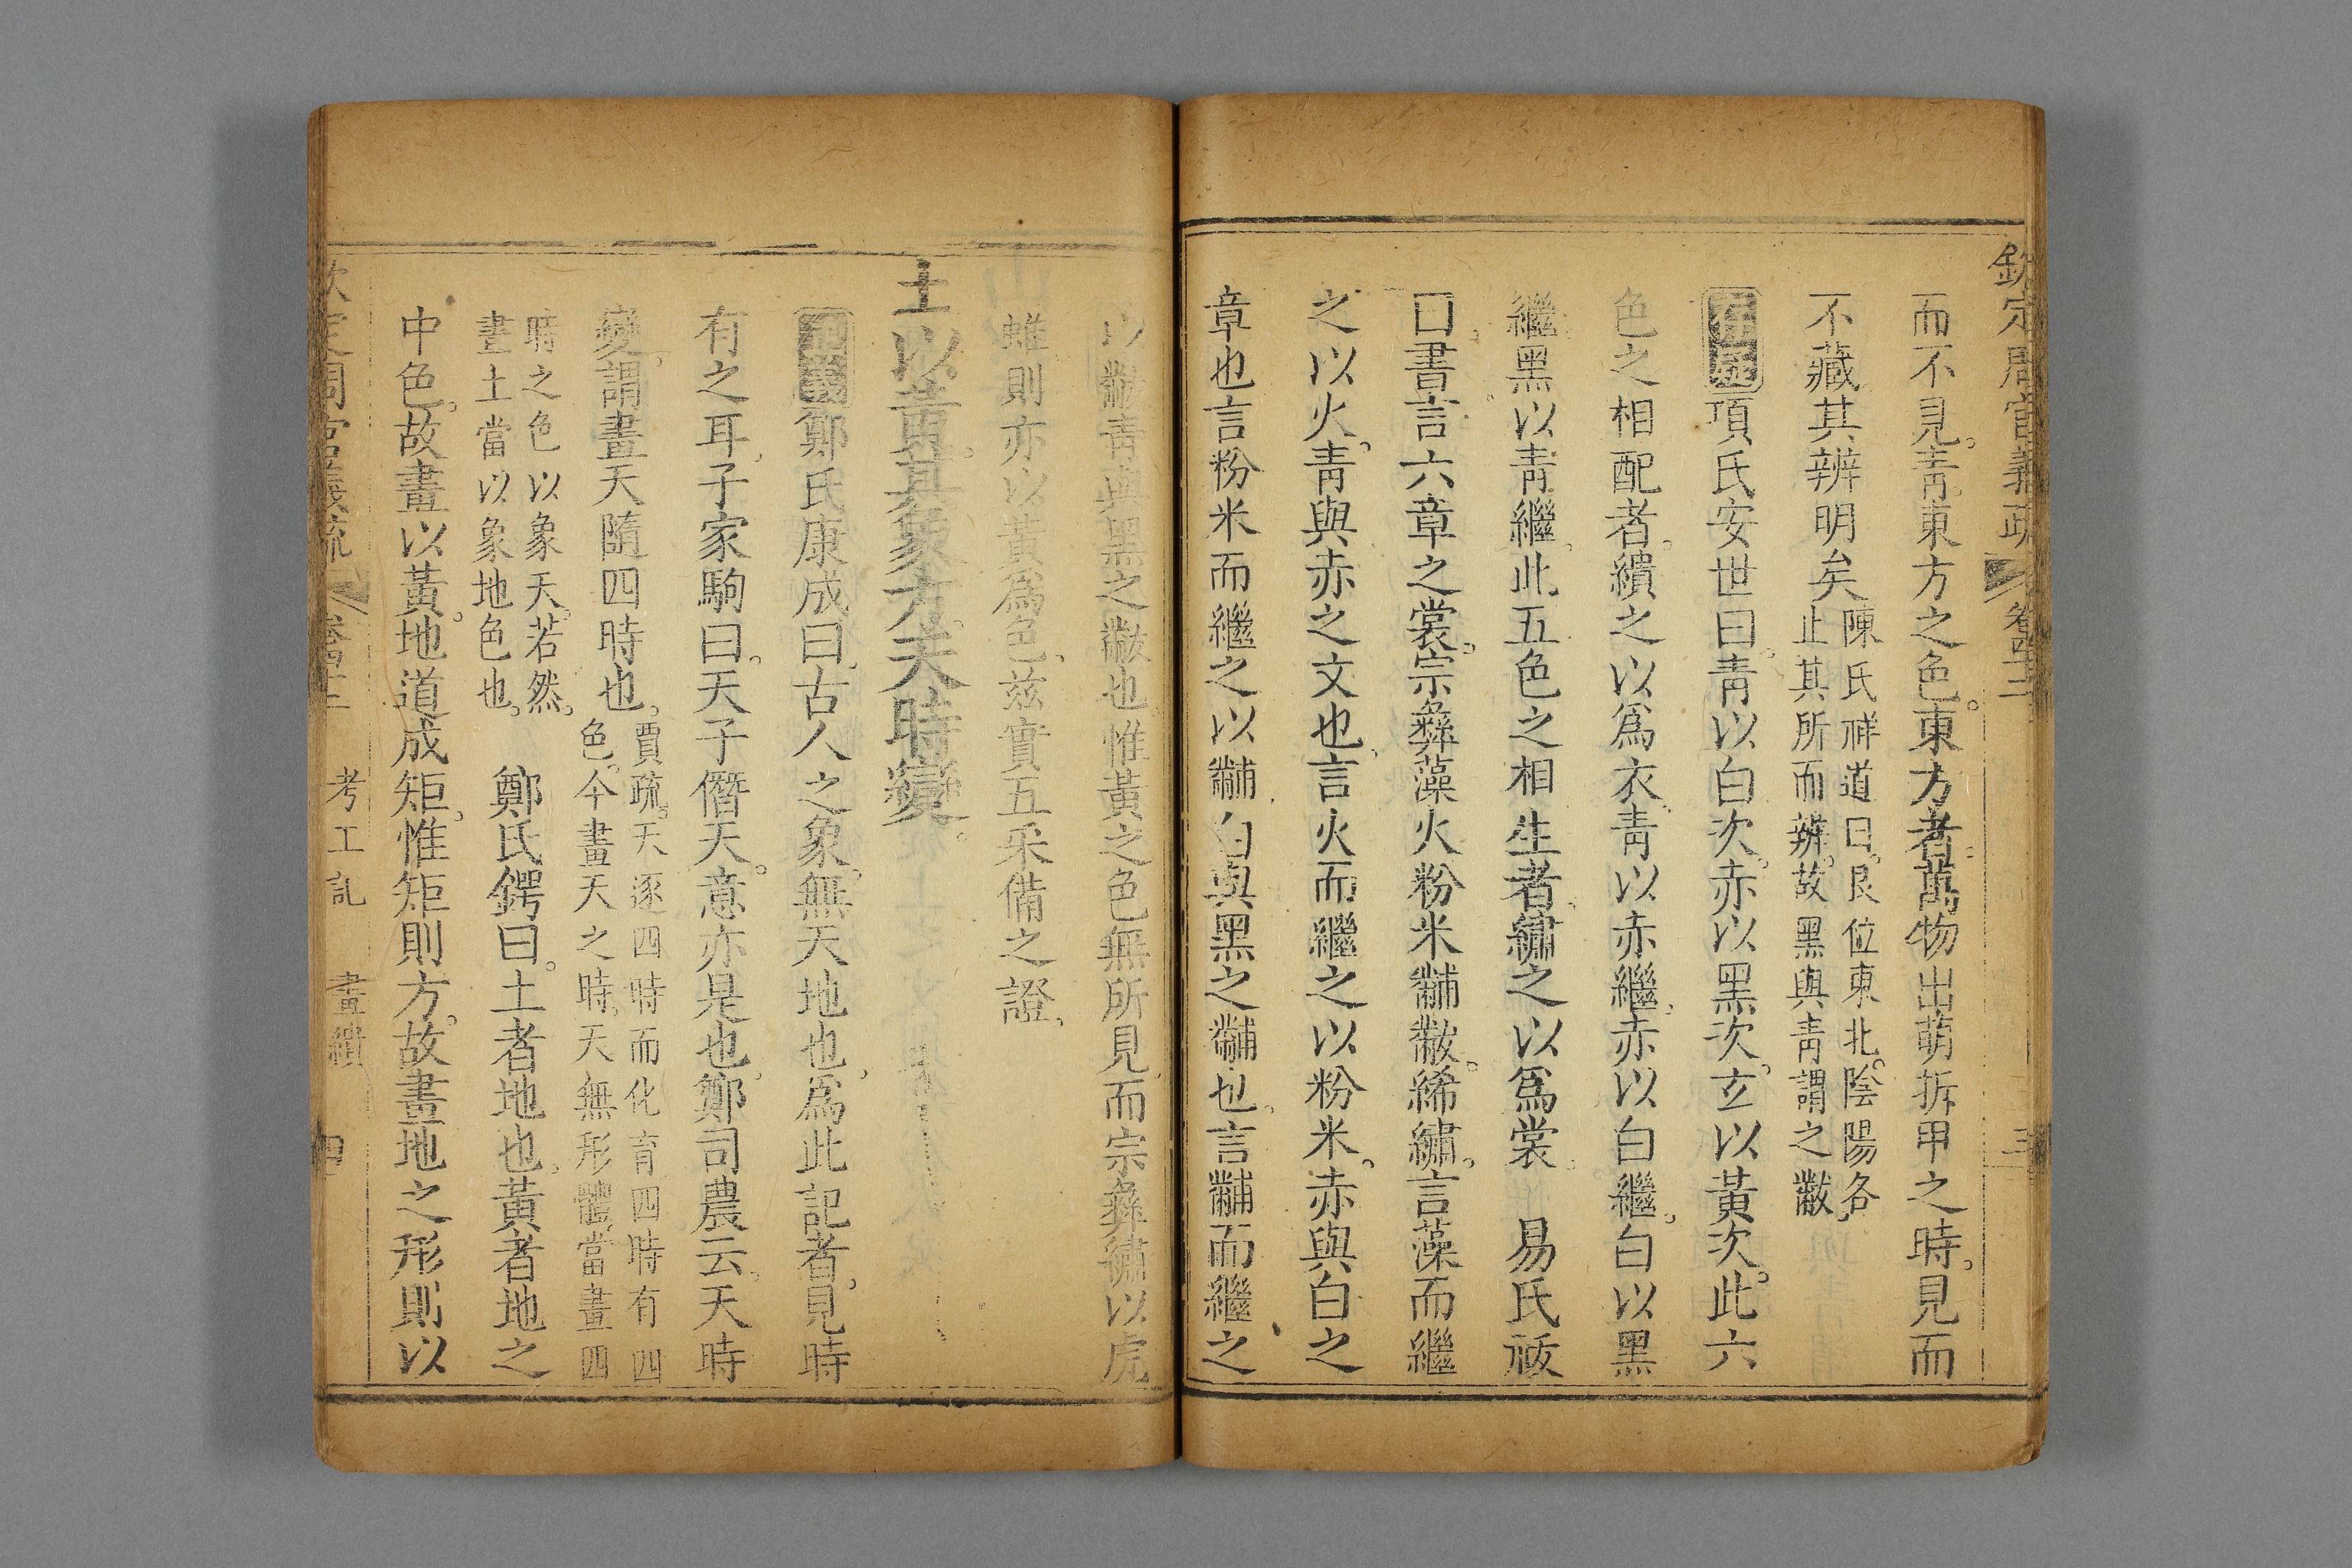 欽定周官義疏 卷四十二 三
而不見靑東方之色東方者萬物出萌拆甲之時見而
不藏其辨明矣陳氏祥道曰艮位東北陰陽各
止其所而辨故黑與靑謂之黻
項氏安世曰靑以白次赤以黑次玄以黃次此六
色之相配者繢之以爲衣靑以赤繼赤以白繼白以黑
繼黑以靑繼此五色之相生者繡之以爲裳 易氏祓
曰書言六章之裳宗彝藻火粉米黼黻絺繡言藻而繼
之以火靑與赤之文也言火而繼之以粉米赤與白之
章也言粉米而繼之以黼白與黑之黼也言黼而繼之
以黻靑與黑之黻也惟黃之色無所見而宗彝繡以虎
蜼則亦以黃爲色茲實五采備之證
土以黃其象方天時變
鄭氏康成曰古人之象無天地也爲此記者見時
有之耳子家駒曰天子僭天意亦是也鄭司農云天時
變謂畫天隨四時也賈疏天逐四時而化育四時有四
色今畫天之時天無形體當畫四
時之色以象天若然
畫土當以象地色也 鄭氏鍔曰土者地也黃者地之
中色故畫以黃地道成矩惟矩則方故畫地之形則以
欽定周官義疏 卷四十二 考工記 畫繢 四